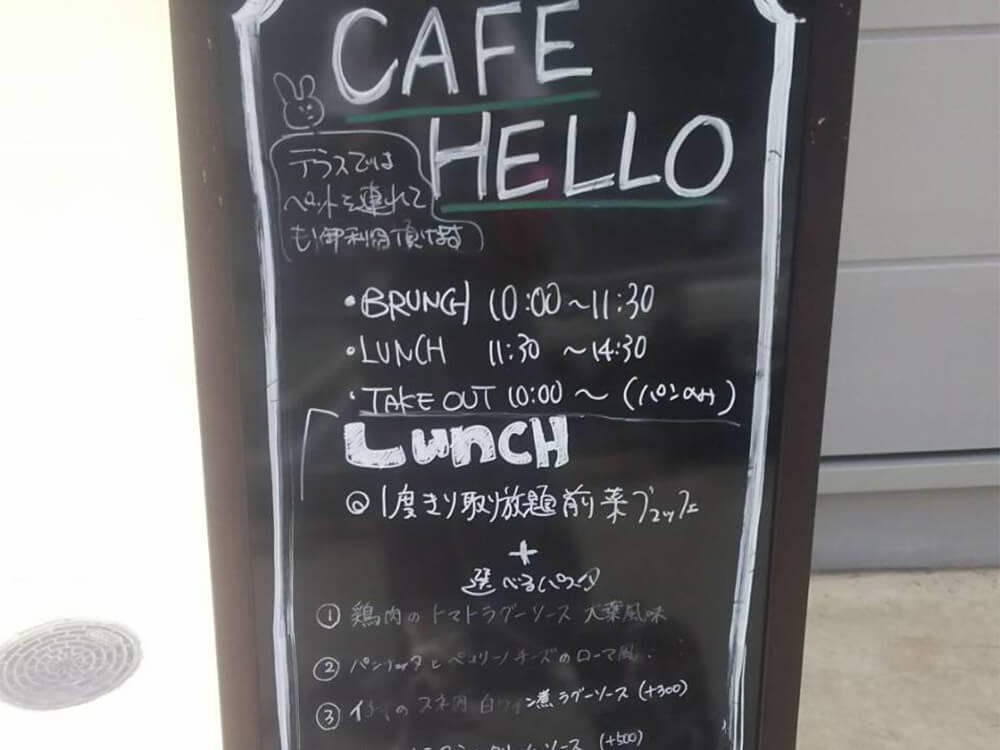 CAFE
HELLO
テラスでは
ペットを連れて
も御利用頂けます
・BRUNCH 10:00〜11:30
・LUNCH 11:30 〜14:30
・TAKE OUT 10:00 〜 (パンのみ)
LUNCH
◎1度きり取り放題前菜ブュッフェ
+
選べるパスタ
① 鶏肉のトマトラグーソース 大葉風味
② パンチェッタとペコリーノチーズのローマ風
③ スネ肉 白ワイン煮ラグーソース (+300)
クリームソース (+500)